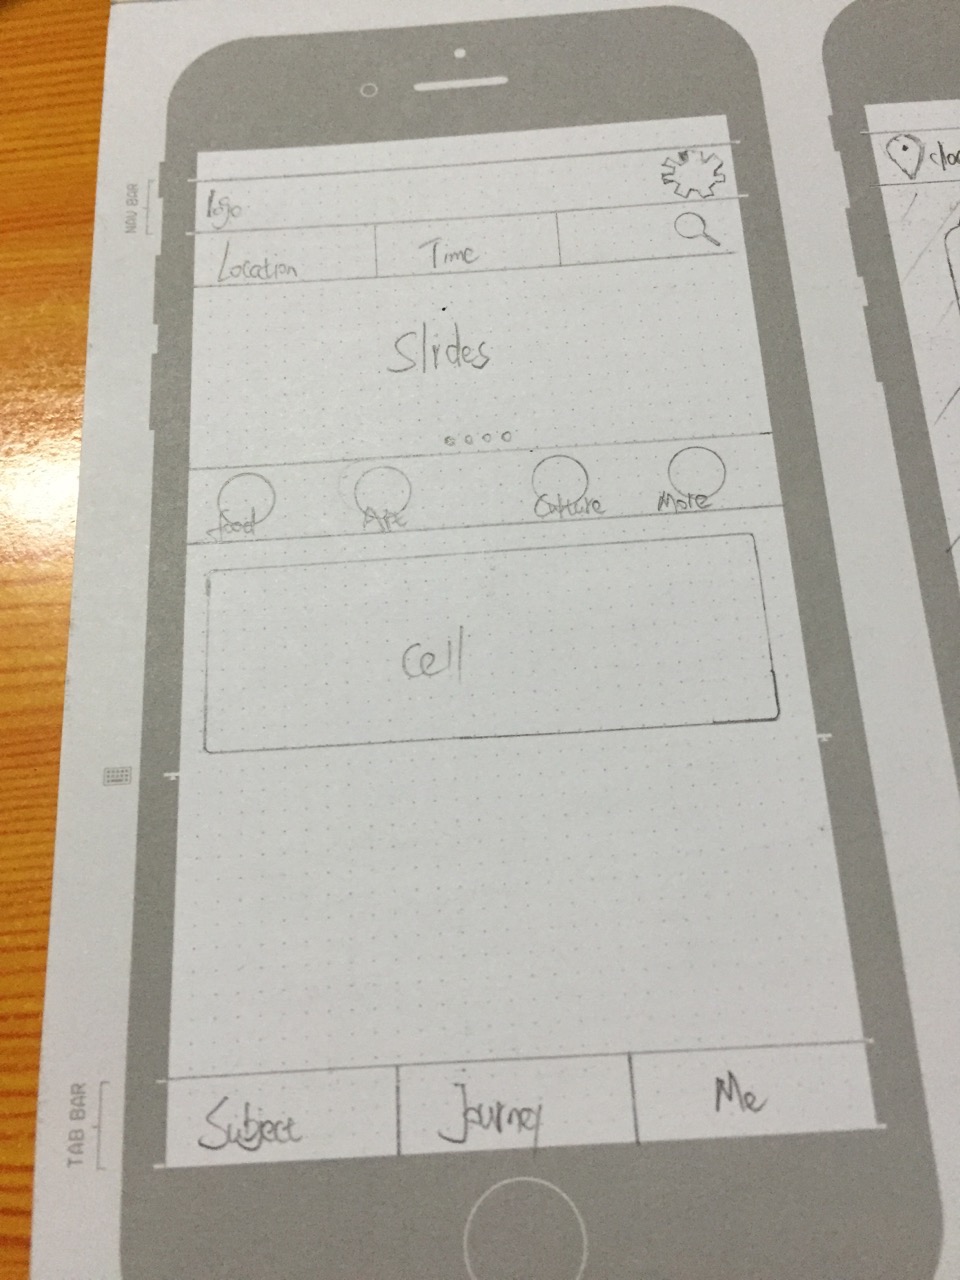 NAV BAR
logo
Location Time
Slides
food Art Culture More
Cell
Subject Journey Me
TAB BAR